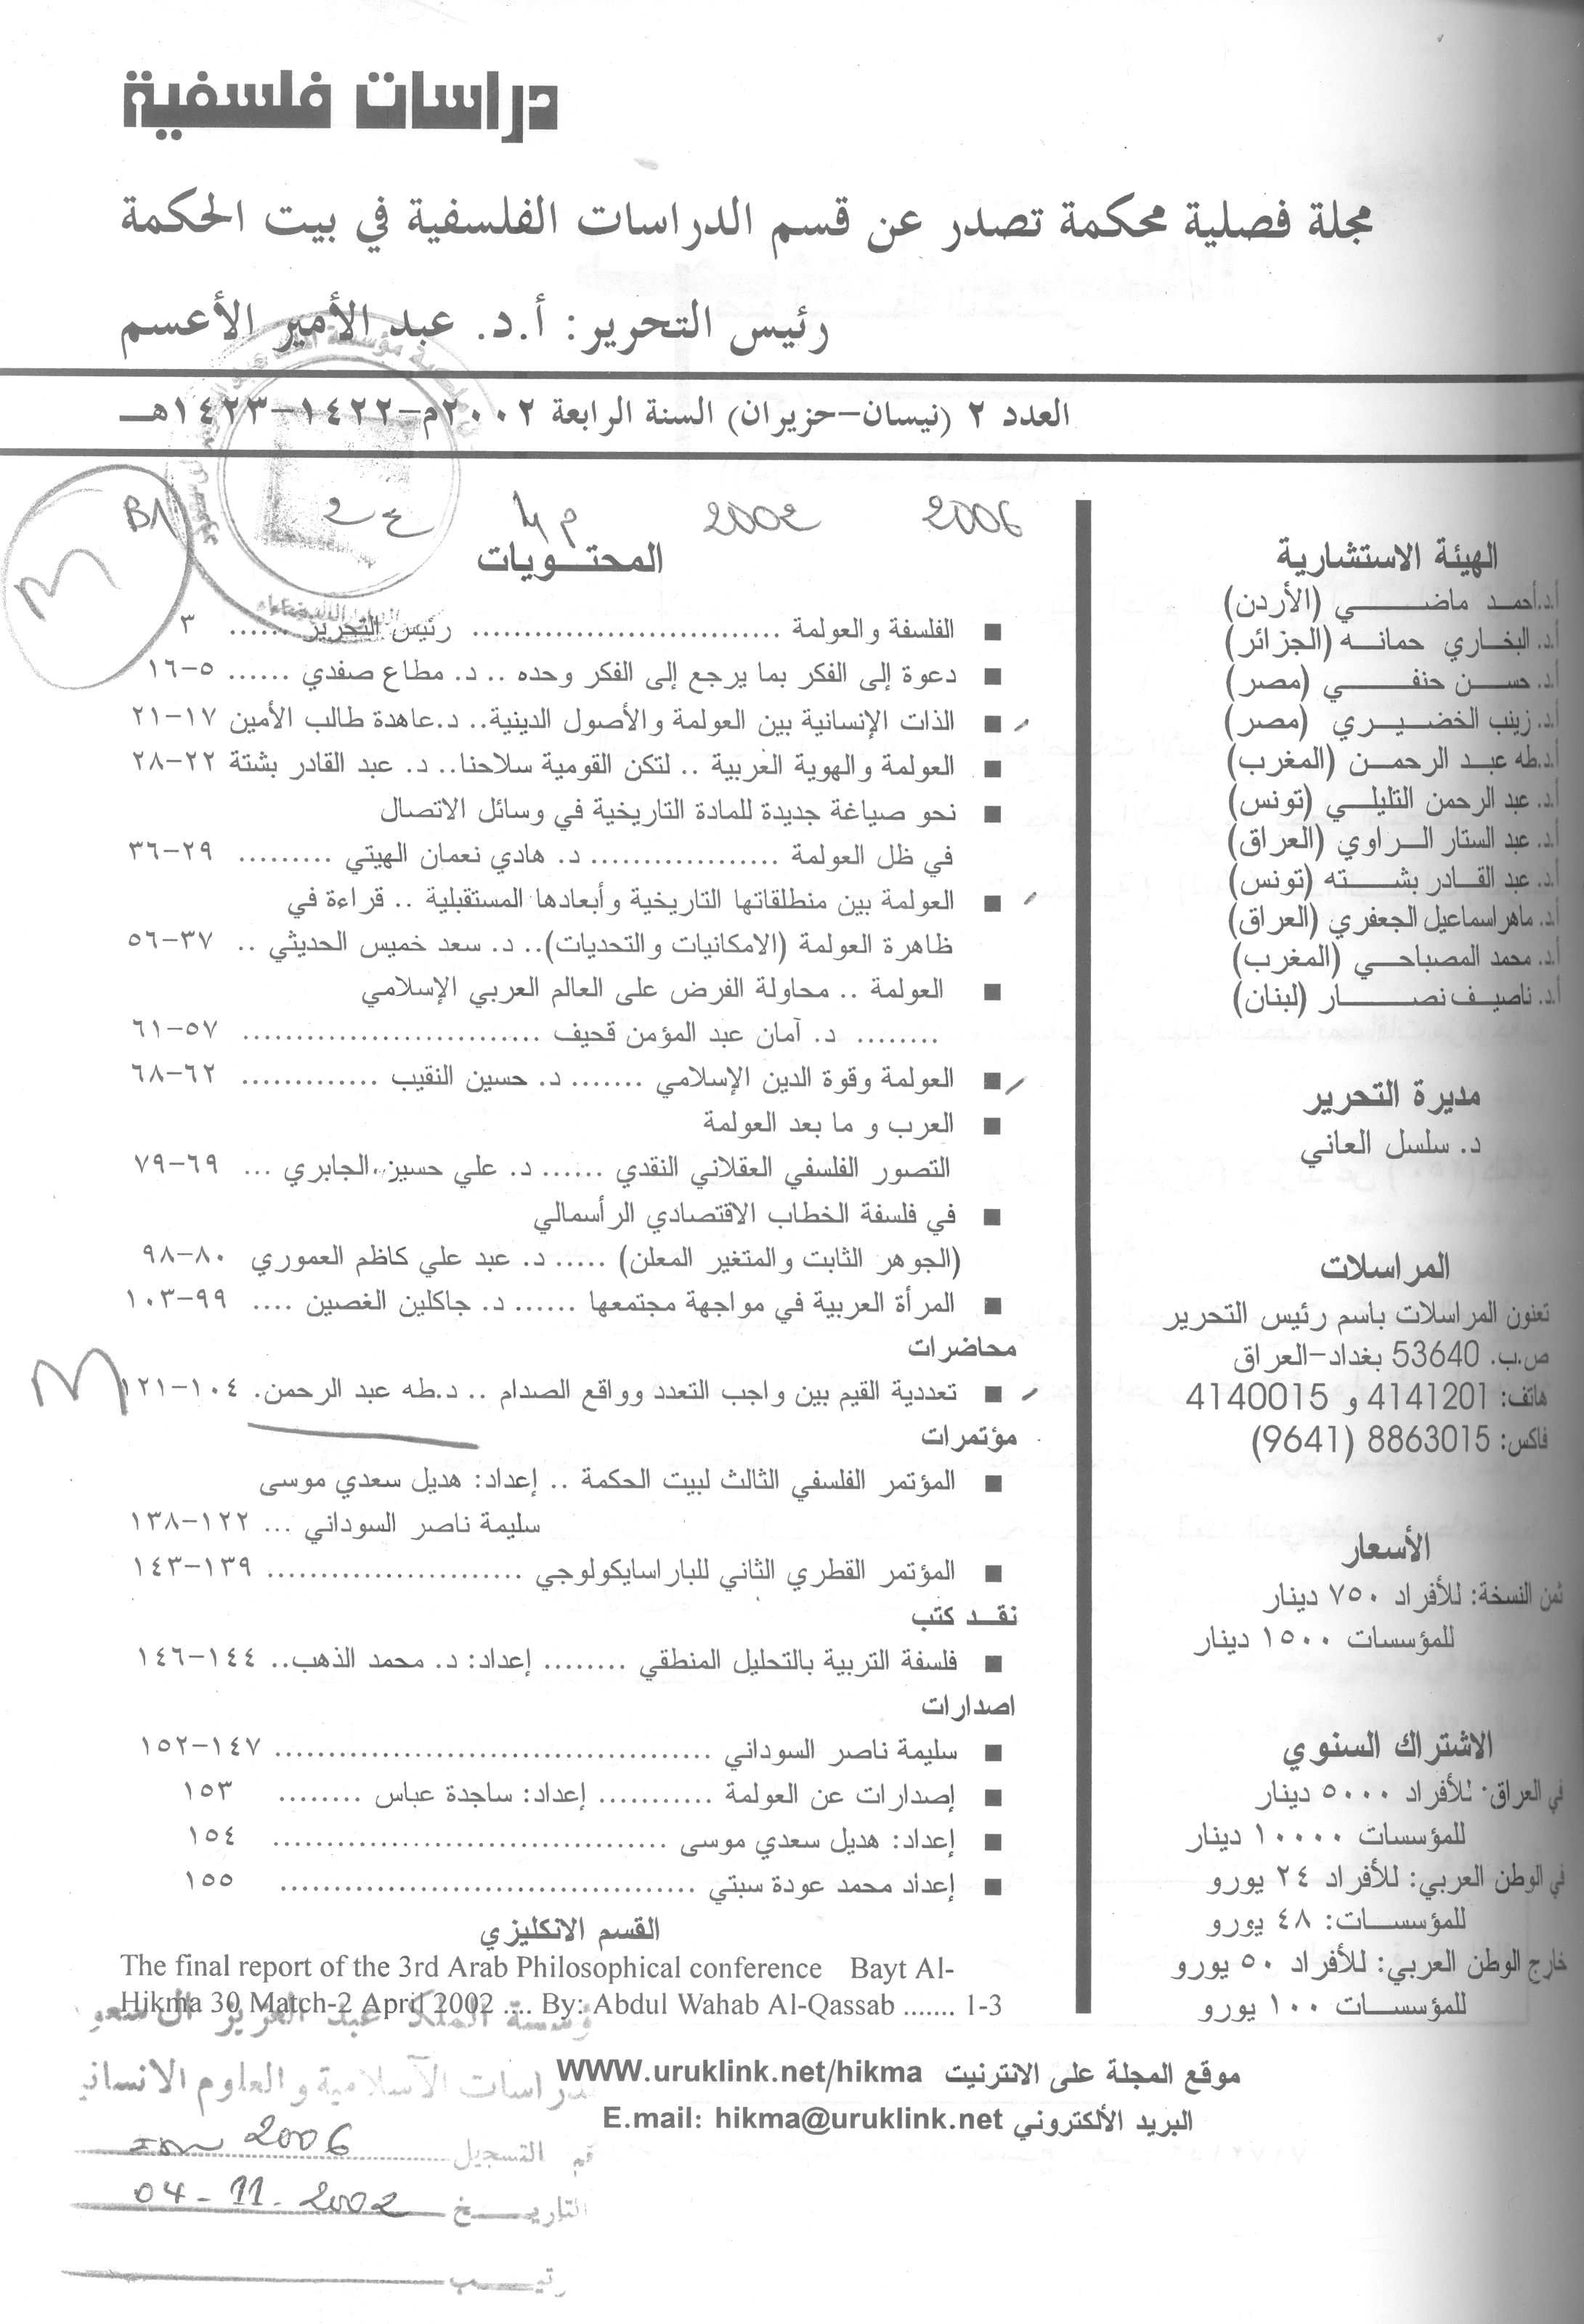 دراسات فلسفية
مجلة فصلية محكمة تصدر عن قسم الدراسات الفلسفية في بيت الحكمة
رئيس التحرير: أ.د. عبد الأمير الأعسم
العدد ٢ (نيسان-حزيران) السنة الرابعة ٢٠٠٢م-١٤٢٢-١٤٢٣هـ
الهيئة الاستشارية
أ.د.أحمد ماضي (الأردن)
أ.د. البخاري حمانه (الجزائر)
أ.د. حسن حنفي (مصر)
أ.د. زينب الخضيري (مصر)
أ.د.طه عبد الرحمن (المغرب)
أ.د. عبد الرحمن التليلي (تونس)
أ.د. عبد الستار الراوي (العراق)
أ.د. عبد القادر بشته (تونس)
أ.د. ماهر اسماعيل الجعفري (العراق)
أ.د. محمد المصباحي (المغرب)
أ.د. ناصيف نصار (لبنان)
مديرة التحرير
د. سلسل العاني
المراسلات
تعنون المراسلات باسم رئيس التحرير
ص.ب. 53640 بغداد-العراق
هاتف: 4141201 و 4140015
فاكس: 8863015 (9641)
الأسعار
ثمن النسخة: للأفراد ٧٥٠ دينار
للمؤسسات ١٥٠٠ دينار
الاشتراك السنوي
في العراق: للأفراد ٥٠٠٠ دينار
للمؤسسات ١٠٠٠٠ دينار
في الوطن العربي: للأفراد ٢٤ يورو
للمؤسسات: ٤٨ يورو
خارج الوطن العربي: للأفراد ٥٠ يورو
للمؤسسات ١٠٠ يورو
2006 2002 م 4 ع 2 B1
M
المحتويات
■ الفلسفة والعولمة .............................. رئيس التحرير ...... ٣
■ دعوة إلى الفكر بما يرجع إلى الفكر وحده .. د. مطاع صفدي ...... ٥-١٦
■ الذات الإنسانية بين العولمة والأصول الدينية.. د.عاهدة طالب الأمين ١٧-٢١
■ العولمة والهوية العربية .. لتكن القومية سلاحنا.. د. عبد القادر بشتة ٢٢-٢٨
■ نحو صياغة جديدة للمادة التاريخية في وسائل الاتصال
في ظل العولمة .................. د. هادي نعمان الهيتي ......... ٢٩-٣٦
■ العولمة بين منطلقاتها التاريخية وأبعادها المستقبلية .. قراءة في
ظاهرة العولمة (الامكانيات والتحديات).. د. سعد خميس الحديثي .. ٣٧-٥٦
■ العولمة .. محاولة الفرض على العالم العربي الإسلامي
........ د. آمان عبد المؤمن قحيف ............................ ٥٧-٦١
■ العولمة وقوة الدين الإسلامي ....... د. حسين النقيب ............. ٦٢-٦٨
■ العرب و ما بعد العولمة
التصور الفلسفي العقلاني النقدي ...... د. علي حسين الجابري ... ٦٩-٧٩
■ في فلسفة الخطاب الاقتصادي الرأسمالي
(الجوهر الثابت والمتغير المعلن) ..... د. عبد علي كاظم العموري ٨٠-٩٨
■ المرأة العربية في مواجهة مجتمعها ...... د. جاكلين الغصين .... ٩٩-١٠٣
محاضرات
■ تعددية القيم بين واجب التعدد وواقع الصدام .. د.طه عبد الرحمن. ١٠٤-١٢١
M
مؤتمرات
■ المؤتمر الفلسفي الثالث لبيت الحكمة .. إعداد: هديل سعدي موسى
سليمة ناصر السوداني ... ١٢٢-١٣٨
■ المؤتمر القطري الثاني للباراسايكولوجي ........................ ١٣٩-١٤٣
نقد كتب
■ فلسفة التربية بالتحليل المنطقي ........ إعداد: د. محمد الذهب.. ١٤٤-١٤٦
اصدارات
■ سليمة ناصر السوداني ......................................... ١٤٧-١٥٢
■ إصدارات عن العولمة ........... إعداد: ساجدة عباس ........ ١٥٣
■ إعداد: هديل سعدي موسى ..................................... ١٥٤
■ إعداد محمد عودة سبتي ....................................... ١٥٥
القسم الانكليزي
The final report of the 3rd Arab Philosophical conference Bayt Al-
Hikma 30 Match-2 April 2002 .... By: Abdul Wahab Al-Qassab ....... 1-3
موقع المجلة على الانترنيت WWW.uruklink.net/hikma
البريد الألكتروني E.mail: hikma@uruklink.net
مؤسسة الملك عبد العزيز آل سعود
للدراسات الاسلامية والعلوم الانسانية
رقم التسجيل 2006
التاريخ 04-11-2002